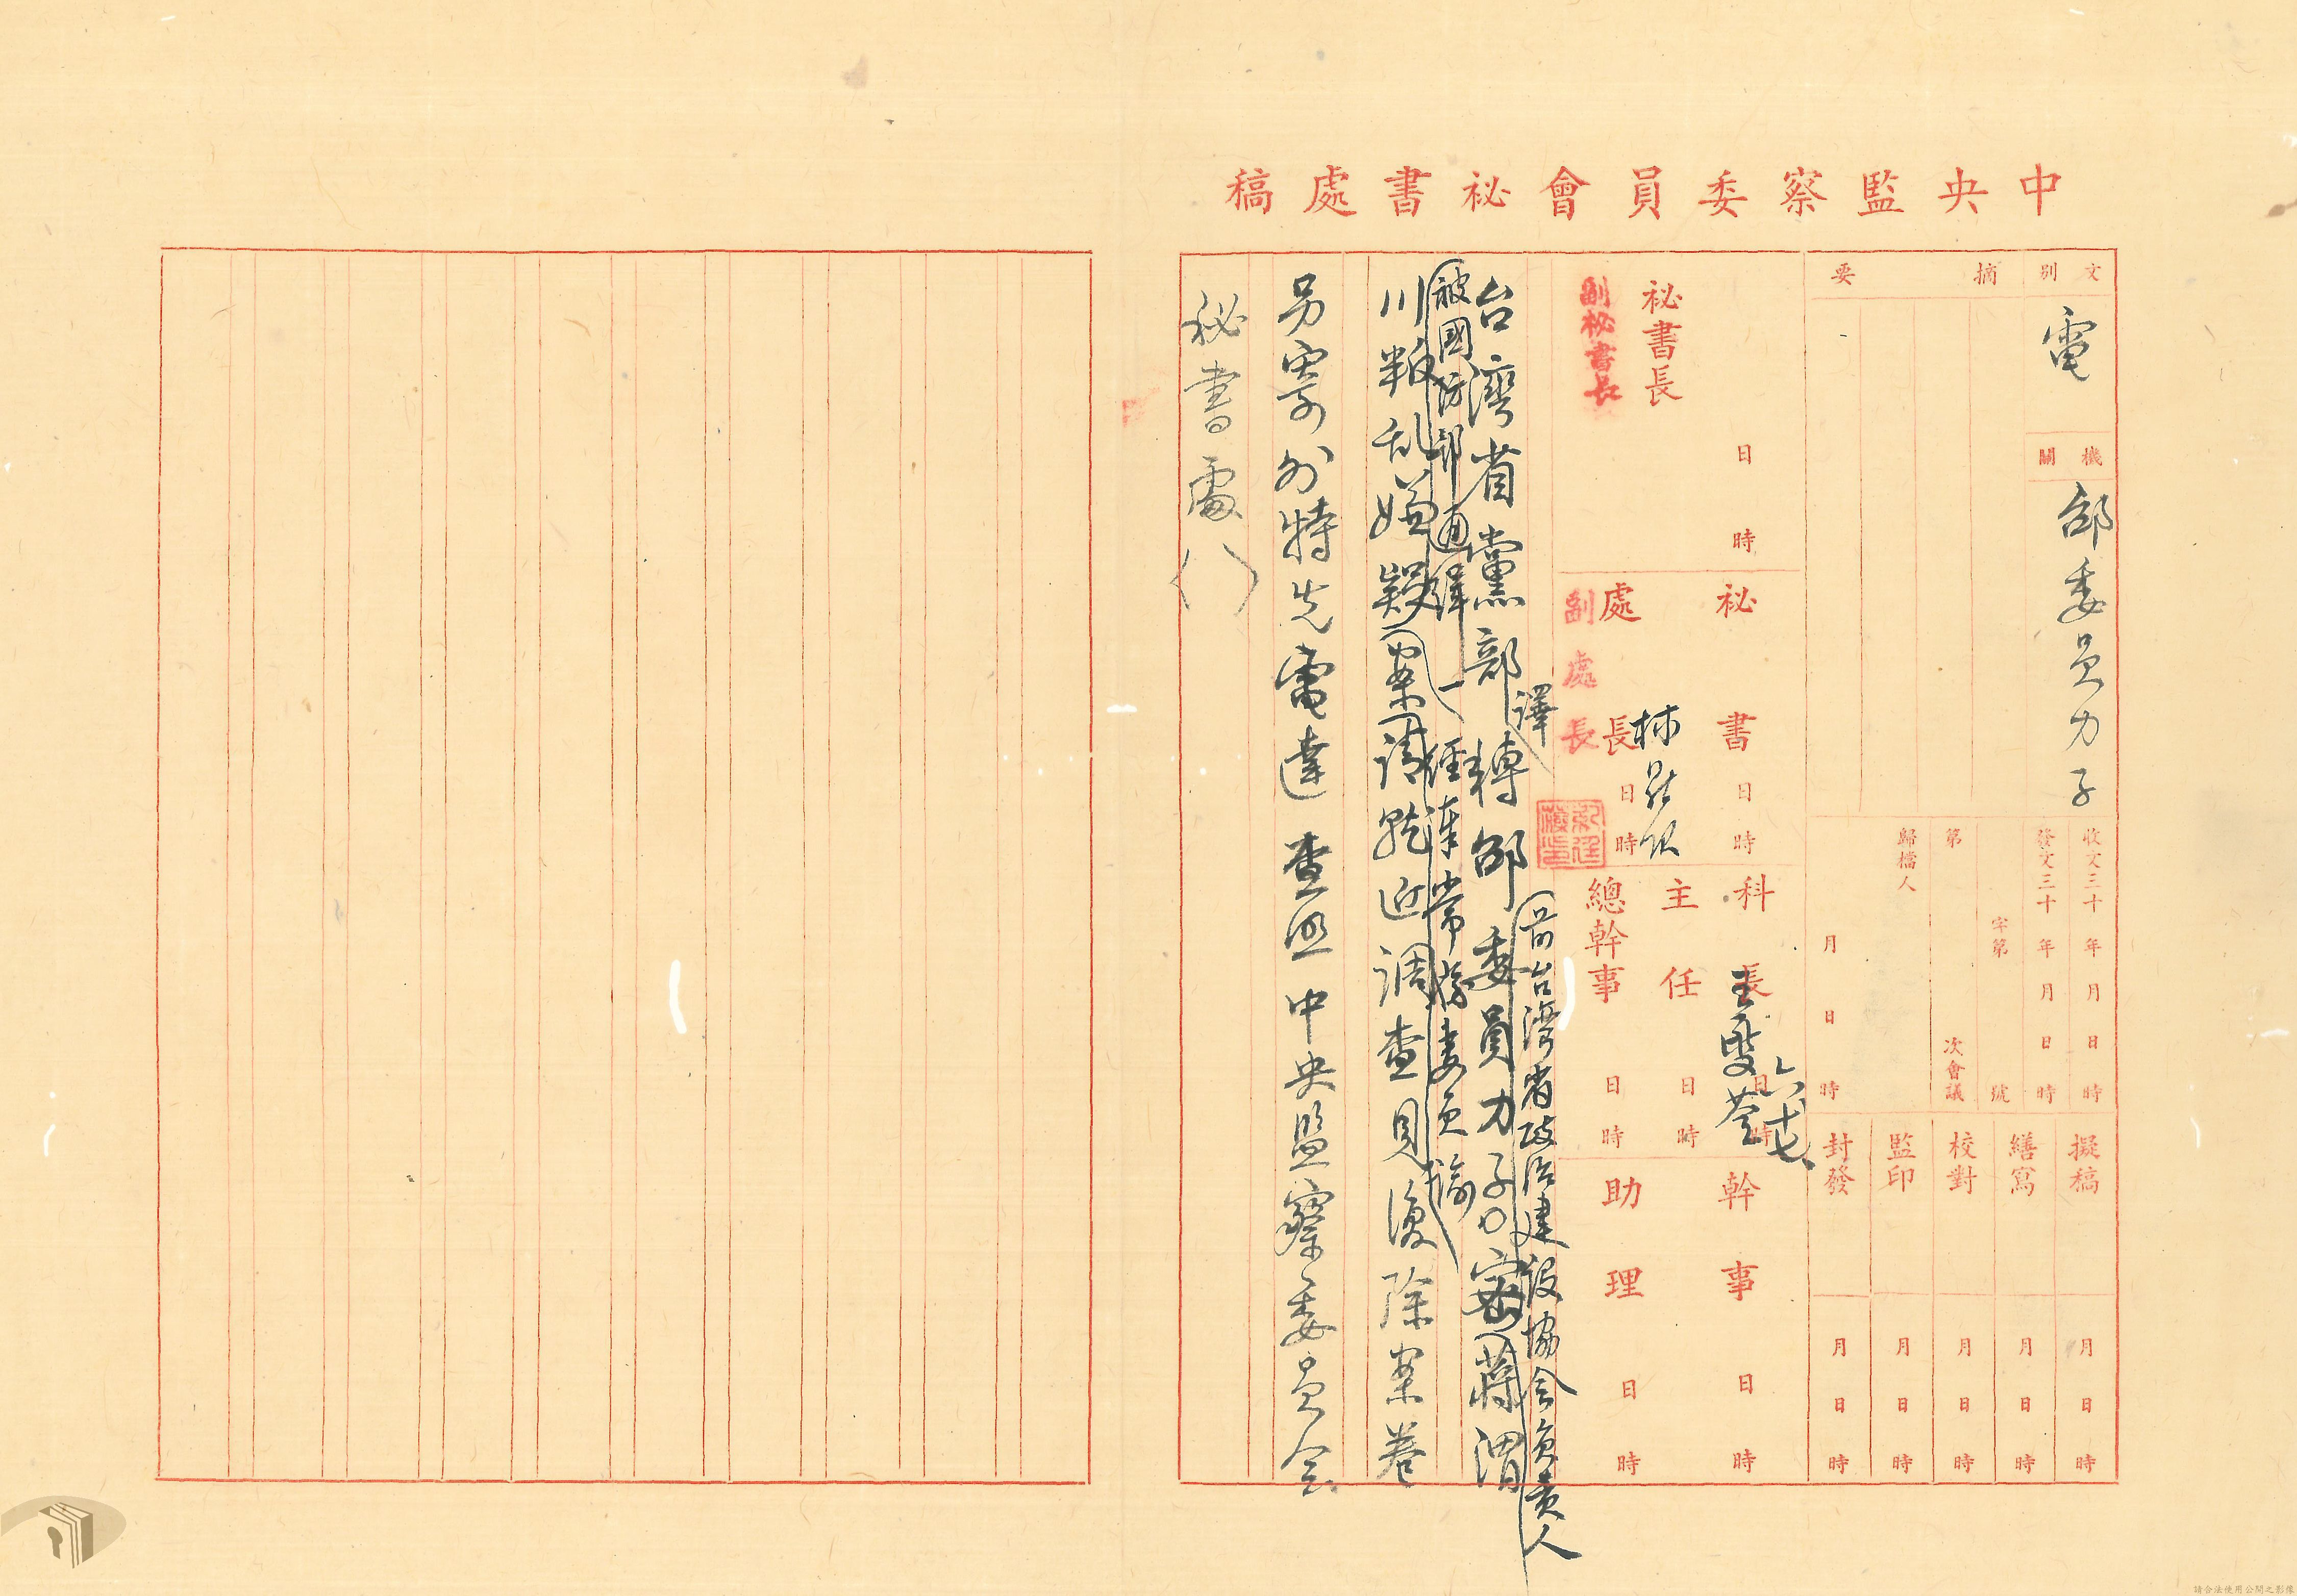 中央監察委員會秘書處稿
文別
電
機關
邵委員力子
摘要
收文三十年月日時
發文三十年月日時
字第號
第次會議
歸檔人
月日時
擬稿
月日時
繕寫
月日時
校對
月日時
監印
月日時
封發
月日時
秘書長
日時
副秘書長
秘書
日時
處長
日時
副處長
林
科長
日時
六、十七、
主任
日時
總幹事
日時
幹事
日時
助理
日時
譯
(前台灣省政治建設協會負責人
台灣省黨部轉邵委員力子密蔣渭
被國防部通緝)經奉常務委員諭
川叛乱嫌疑案請就近調查見復除案卷
另寄外特先電達查照中央監察委員会
秘書處()
請合法使用公開之影像